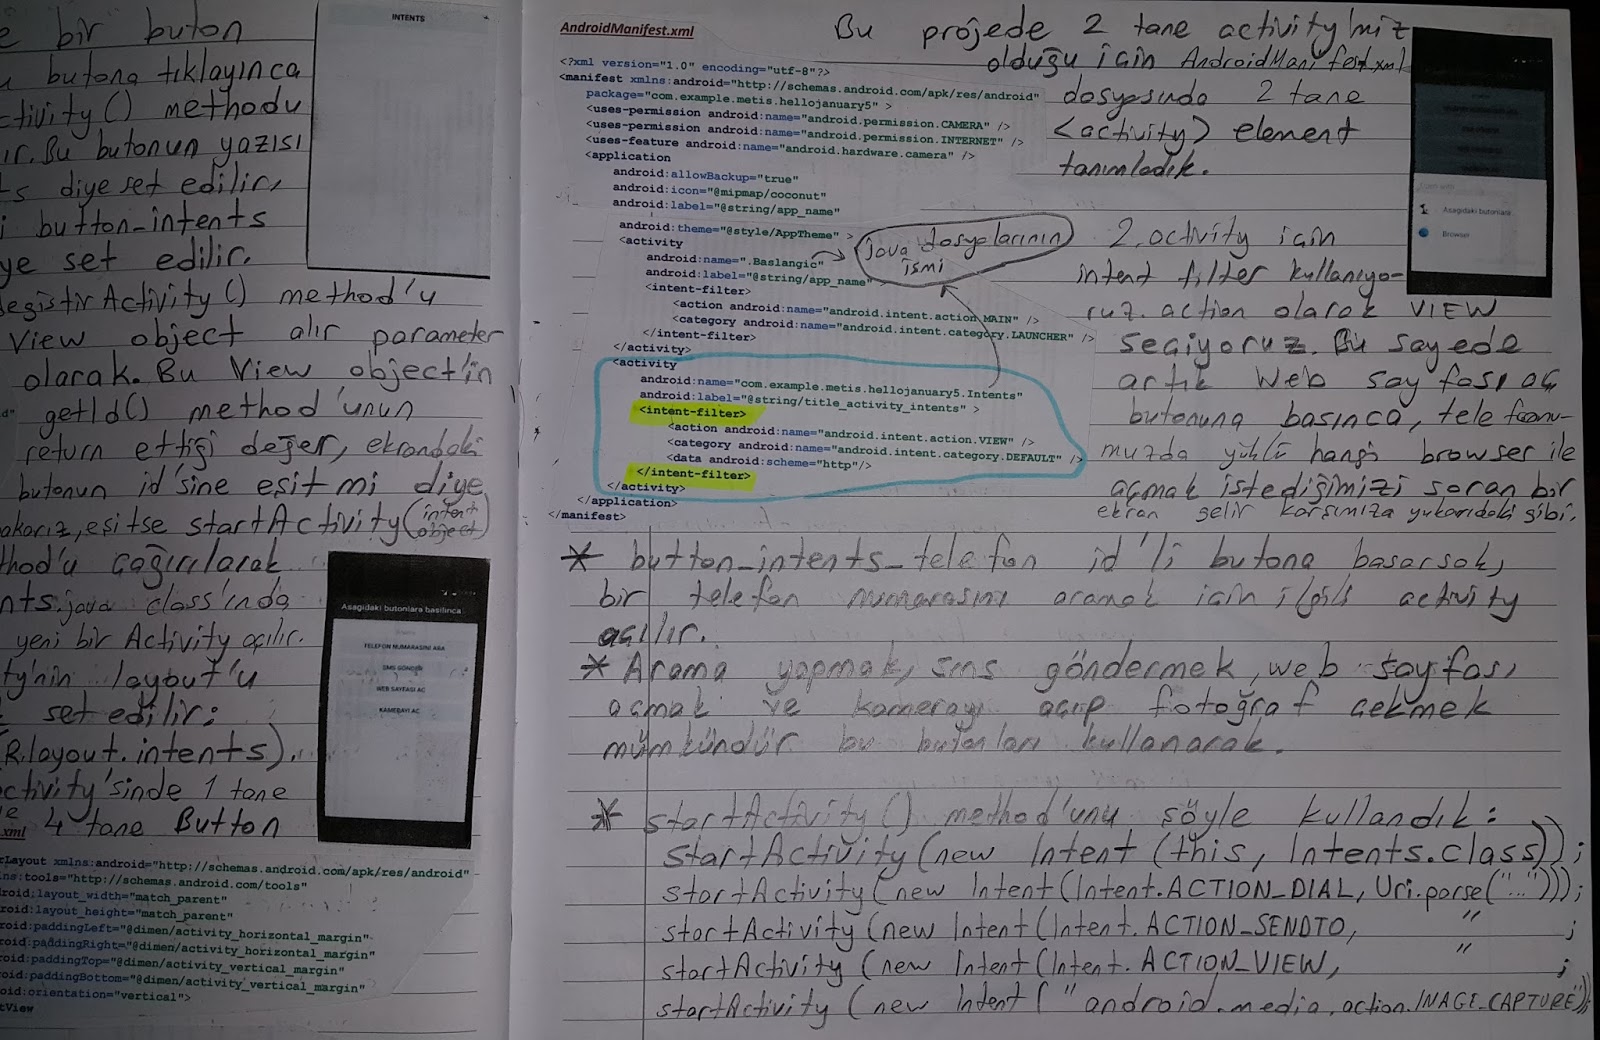 bir buton
butona tıklayınca
ctivity() methodu
ır. Bu butonun yazısı
ts diye set edilir,
i button_intents
ye set edilir.
degistirActivity() method'u
View object alır parameter
olarak. Bu View object'in
getId() method'unun
return ettiği değer, ekrandaki
butonun id'sine eşit mi diye
bakarız, eşitse startActivity(intent object)
thod'u çağırılarak
nts.java class'ında
yeni bir Activity açılır.
ty'nin layout'u
set edilir:
R.layout.intents).
activity'sinde 1 tane
ve 4 tane Button
xml
rLayout xmlns:android="http://schemas.android.com/apk/res/android"
ns:tools="http://schemas.android.com/tools"
droid:layout_width="match_parent"
roid:layout_height="match_parent"
roid:paddingLeft="@dimen/activity_horizontal_margin"
roid:paddingRight="@dimen/activity_horizontal_margin"
roid:paddingTop="@dimen/activity_vertical_margin"
roid:paddingBottom="@dimen/activity_vertical_margin"
oid:orientation="vertical">
tView
INTENTS
Asagidaki butonlara basilinca
TELEFON NUMARASINI ARA
SMS GONDER
WEB SAYFASI AC
KAMERAYI AC
AndroidManifest.xml
<?xml version="1.0" encoding="utf-8"?>
<manifest xmlns:android="http://schemas.android.com/apk/res/android"
package="com.example.metis.hellojanuary5" >
<uses-permission android:name="android.permission.CAMERA" />
<uses-permission android:name="android.permission.INTERNET" />
<uses-feature android:name="android.hardware.camera" />
<application
android:allowBackup="true"
android:icon="@mipmap/coconut"
android:label="@string/app_name"
android:theme="@style/AppTheme" >
<activity
android:name=".Baslangic"
android:label="@string/app_name"
<intent-filter>
<action android:name="android.intent.action.MAIN" />
<category android:name="android.intent.category.LAUNCHER" />
</intent-filter>
</activity>
<activity
android:name="com.example.metis.hellojanuary5.Intents"
android:label="@string/title_activity_intents" >
<intent-filter>
<action android:name="android.intent.action.VIEW" />
<category android:name="android.intent.category.DEFAULT" />
<data android:scheme="http"/>
</intent-filter>
</activity>
</application>
</manifest>
java dosyalarının
ismi
Bu projede 2 tane activity'miz
olduğu için AndroidManifest.xml
dosyasında 2 tane
<activity> element
tanımladık.
2. activity için
intent filter kullanıyo-
ruz. action olarak VIEW
seçiyoruz. Bu sayede
artık Web sayfası aç
butonuna basınca, telefonu-
muzda yüklü hangi browser ile
açmak istediğimizi soran bir
ekran gelir karşımıza yukarıdaki gibi.
Asagidaki butonlara
Browser
* button_intents_telefon id'li butona basarsak,
bir telefon numarasını aramak için ilgili activity
açılır.
* Arama yapmak, sms göndermek, web sayfası
açmak ve kamerayı açıp fotoğraf çekmek
mümkündür bu butonları kullanarak.
* startActivity() method'unu şöyle kullandık:
startActivity(new Intent(this, Intents.class));
startActivity(new Intent(Intent.ACTION_DIAL, Uri.parse("...")));
startActivity(new Intent(Intent.ACTION_SENDTO, " ;
startActivity(new Intent(Intent.ACTION_VIEW, " ;
startActivity(new Intent("android.media.action.IMAGE_CAPTURE"));